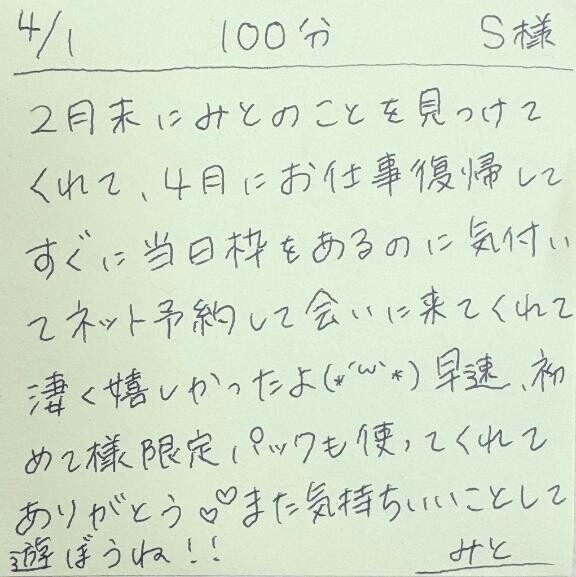 4/1 100分 S様
2月末にみとのことを見つけて
くれて、4月にお仕事復帰して
すぐに当日枠をあるのに気付い
てネット予約して会いに来てくれて
凄く嬉しかったよ(*´ω`*)早速、初
めて様限定パックも使ってくれて
ありがとう♡♡また気持ちいいことして
遊ぼうね!!
みと